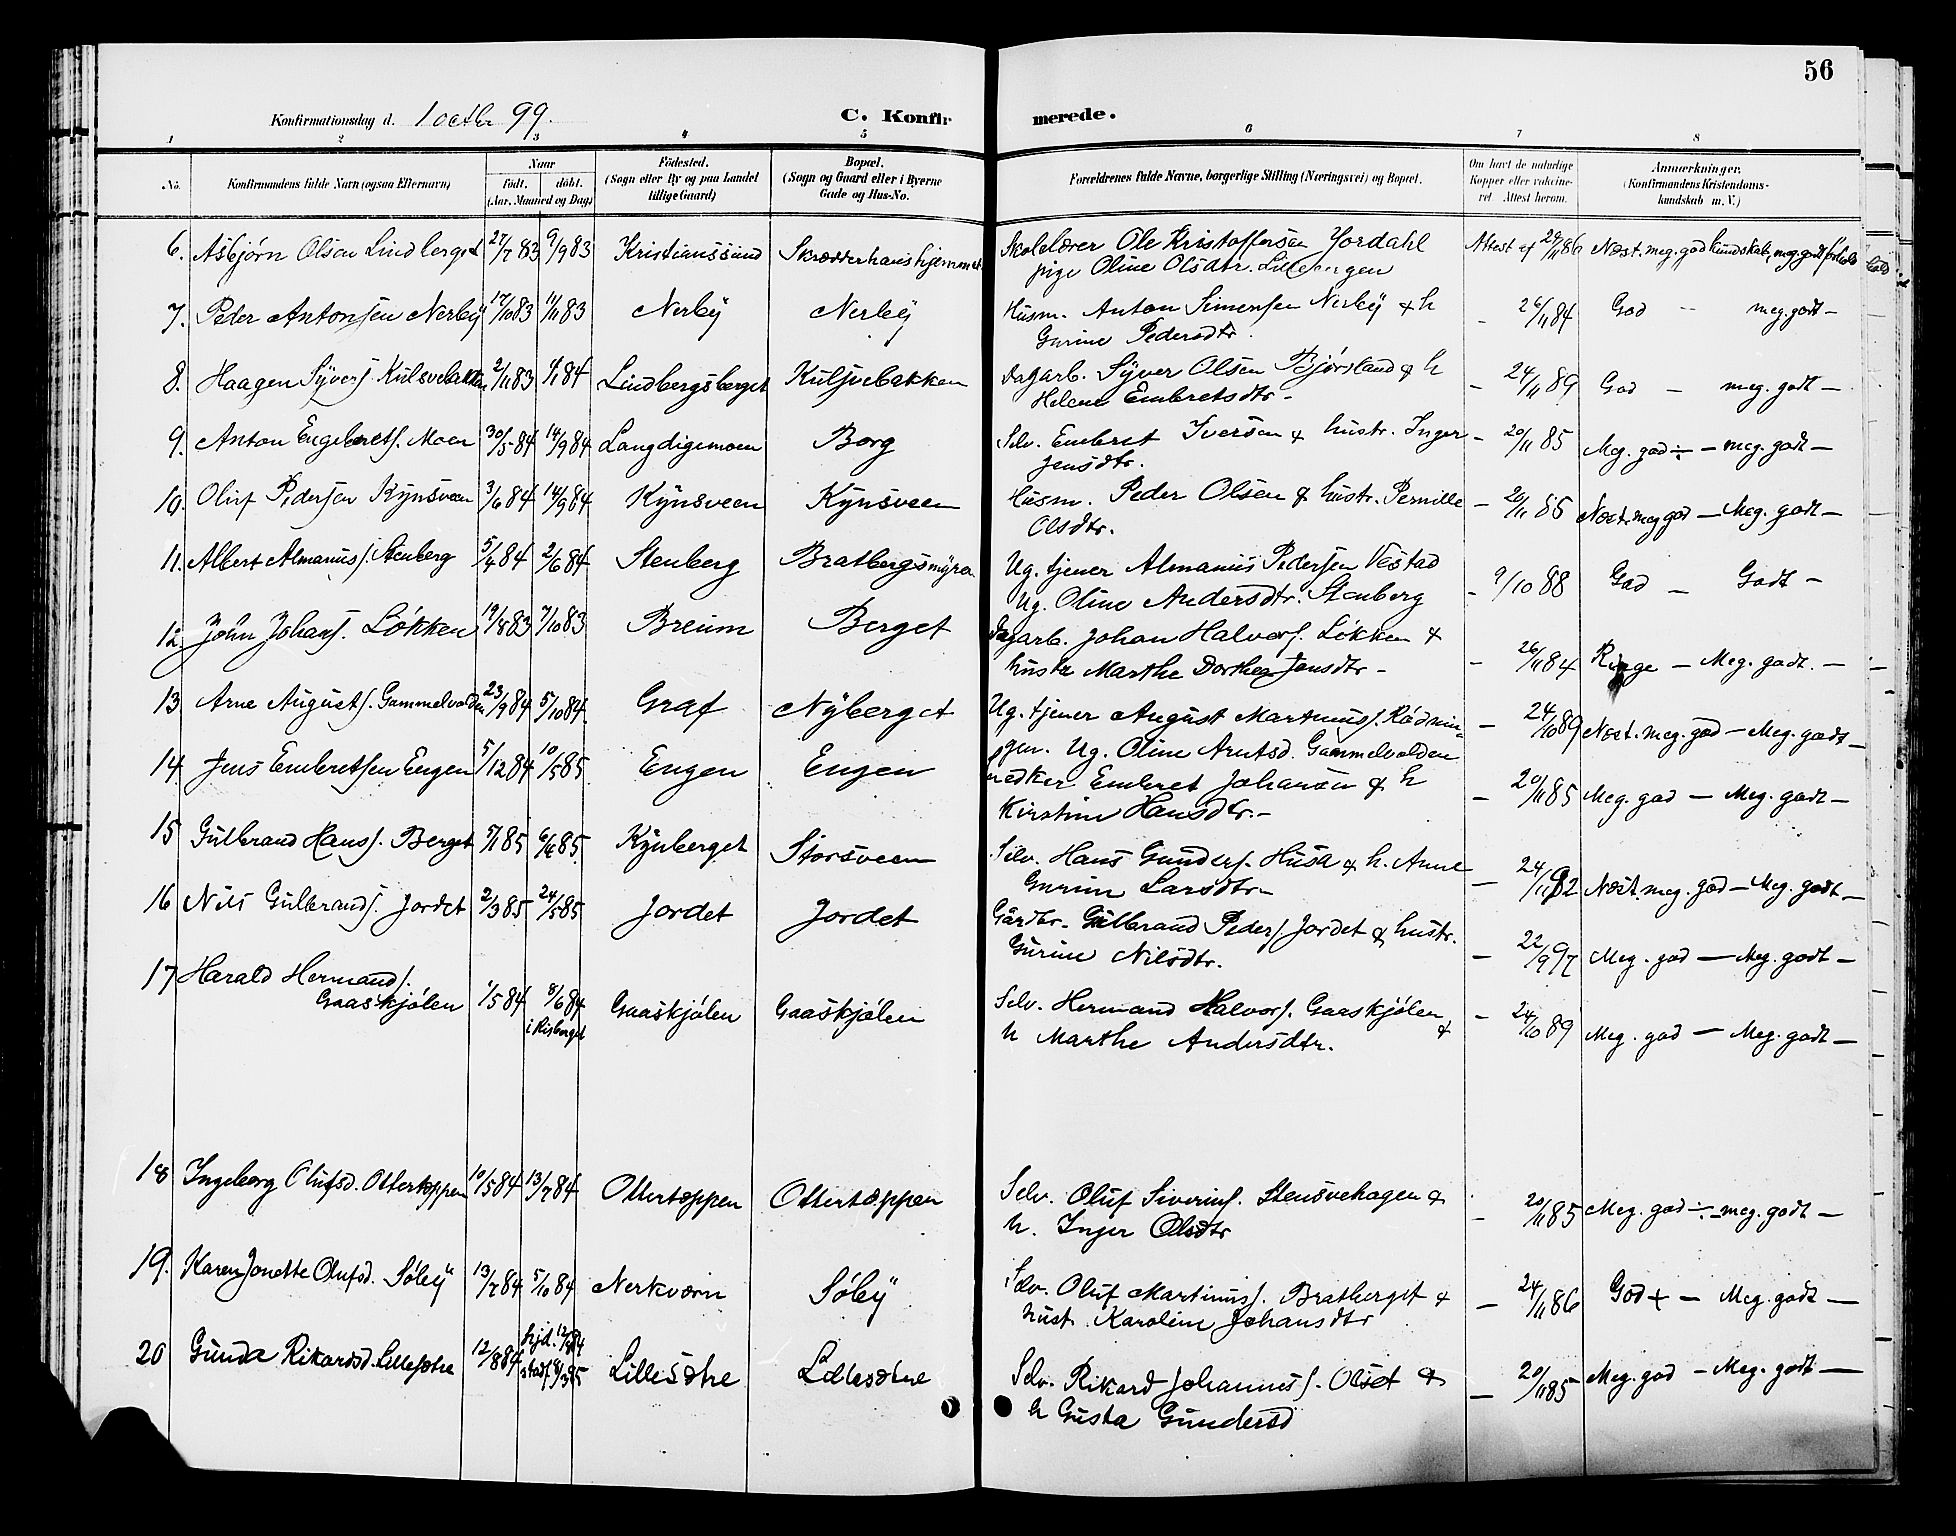 56
Konfirmationsdag d. 1 octbr 99.
C. Konfirmerede.
1 2 3 4 5 6 7 8
No. Konfirmandens fulde Navn (ogsaa Efternavn) Naar født. døbt. (Aar, Maaned og Dag) Fødested. (Sogn eller By og paa Landet tillige Gaard) Bopæl. (Sogn og Gaard eller i Byerne Gade og Hus-No. Forældrenes fulde Navne, borgerlige Stilling (Næringsvei) og Bopæl. Om havt de naturlige Kopper eller vaccineret. Attest herom. Anmærkninger. (Konfirmandens Kristendomskundskab m. V.)
6. Asbjørn Olsen Lindberget 27/7 83 9/9 83 Kristianssund Skrædderhanshjemmet Skolelærer Ole Kristoffersen Jordahl Attest af 29/11 86 Næst. meg. god kundskab, meg godt forhold
pige Oline Olsdtr. Lillebergen
7. Peder Antonsen Nerby 17/10 83 11/11 83 Nerby Nerby Husm. Anton Simensen Nerby & h - 26/11 84 God - meg. godt -
Gurine Pedersdtr.
8. Haagen Syvers. Kulsvebakken 2/11 83 1/1 84 Lindbergsberget Kuljvebakken Dagarb. Syver Olsen Bjørsland & h - 24/11 89 God - meg. godt -
Helene Embretsdtr -
9. Anton Engebrets. Moen 30/5 84 14/9 84 Langdigemoen Borg Selv. Embret Iversen & hustr. Inger - 20/11 85 Meg. god ÷ - meg. godt -
Jensdtr.
10. Oluf Pedersen Kynsveen 3/6 84 14/9 84 Kynsveen Kynsveen Husm. Peder Olsen & hustr. Pernille - 20/11 85 Næst. meg god - Meg. godt -
Olsdtr.
11. Albert Almanus. Stenberg 5/4 84 2/6 84 Stenberg Bratbergsmyra Ug. tjener Almanus Pedersen Vestad
Ug. Oline Andersdtr. Stenberg - 9/10 88 God - Godt -
12. John Johans. Løkken 19/8 83 7/10 83 Breum Berget Dagarb. Johan Halvors. Løkken &
hustr Marthe Dorthea Jensdtr - - 26/11 84 Ringe - Meg. godt. -
13 Arne Augusts. Gammelvolden 23/9 84 5/10 84 Graf Nyberget Ug. tjener August Martinus. Rødnin- - 24/10 89 Næst. meg. god - Meg. godt -
gen. Ug. Oline Arntsd. Gammelvolden
14 Jens Embretsen Engen 5/12 84 10/5 85 Engen Engen Embret Johansen & h - 20/11 85 Meg. god - Meg. godt -
Kirstine Hansdtr. -
15 Gulbrand Hans. Berget 5/1 85 6/4 85 Kynberget Storsveen Selv. Hans Gunders. Husa & h. Anne - 24/11 92 Næst. meg. god - Meg. godt -
Gurine Larsdtr -
16 Nils Gulbrands. Jordet 2/3 85 24/5 85 Jordet Jordet Gårdbr. Gulbrand Peders. Jordet & hustr. - 22/9 97 Meg. god - Meg. godt -
Gurine Nilsdtr.
17 Harald Hermands.
Gaaskjølen 1/5 84 8/6 84 i Risberget Gaaskjølen Gaaskjølen Selv. Hermand Halvors. Gaaskjølen & - 24/10 89 Meg. god - Meg. godt -
h Marthe Andersdtr.
18 Ingeborg Olufsd. Ottertoppen 10/5 84 13/7 84 Ottertoppen Ottertoppen Selv. Oluf Siverins. Stensvehagen & - 20/11 85 Meg. god ÷ - meg. godt -
h. Inger Olsdtr
19. Karen Jonette Olufsd. Søby 13/7 84 5/10 84 Nerkværn Søby Selv. Oluf Martinus. Bratberget & - 24/11 86 God + - Meg. godt -
hust. Karoline Johansdtr
20 Gunda Rikardsd. Lillesætre 12/8 84 hjd. stadf. Lillesætre Lillesætre Selv. Rikard Johannes. Olset & - 20/11 85 Meg. god - Meg. godt -
h Gusta Gundersd